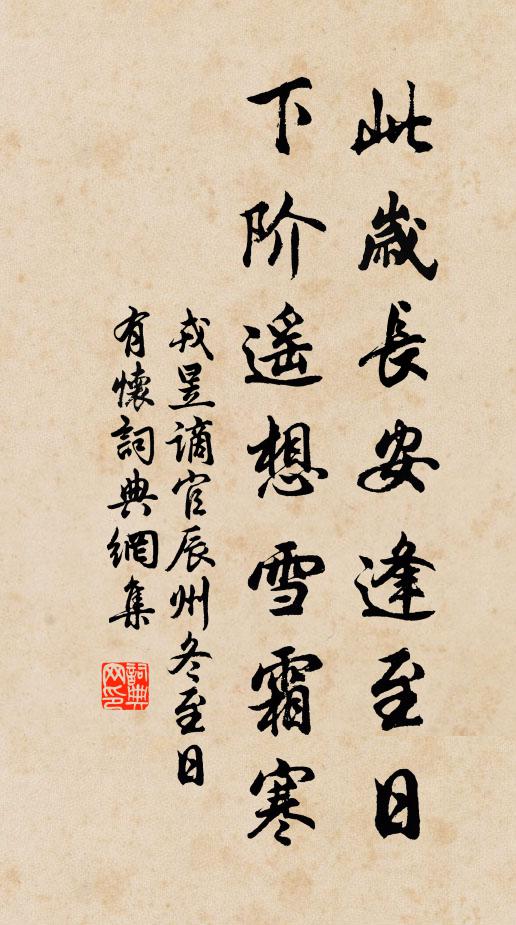 此歲長安逢至日
下阶遥想雪霜寒
戎昱謫官辰州冬至日
有懷詞典網集
詞典网印